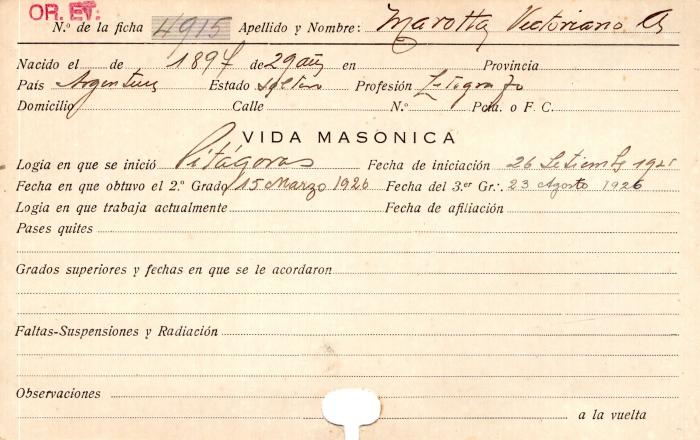 OR. EV.
N.º de la ficha 4915 Apellido y Nombre: Marotta, Victoriano
Nacido el de 1897 de 29 añ en Provincia
País Argentina Estado soltero Profesión Litografo
Domicilio Calle N.º Pcia. o F. C.
VIDA MASONICA
Logia en que se inició Pitágoras Fecha de iniciación 26 Setiembre 1925
Fecha en que obtuvo el 2.º Grado 15 Marzo 1926 Fecha del 3.er Gr. 23 Agosto 1926
Logia en que trabaja actualmente Fecha de afiliación
Pases quites
Grados superiores y fechas en que se le acordaron
Faltas-Suspensiones y Radiación
Observaciones
a la vuelta